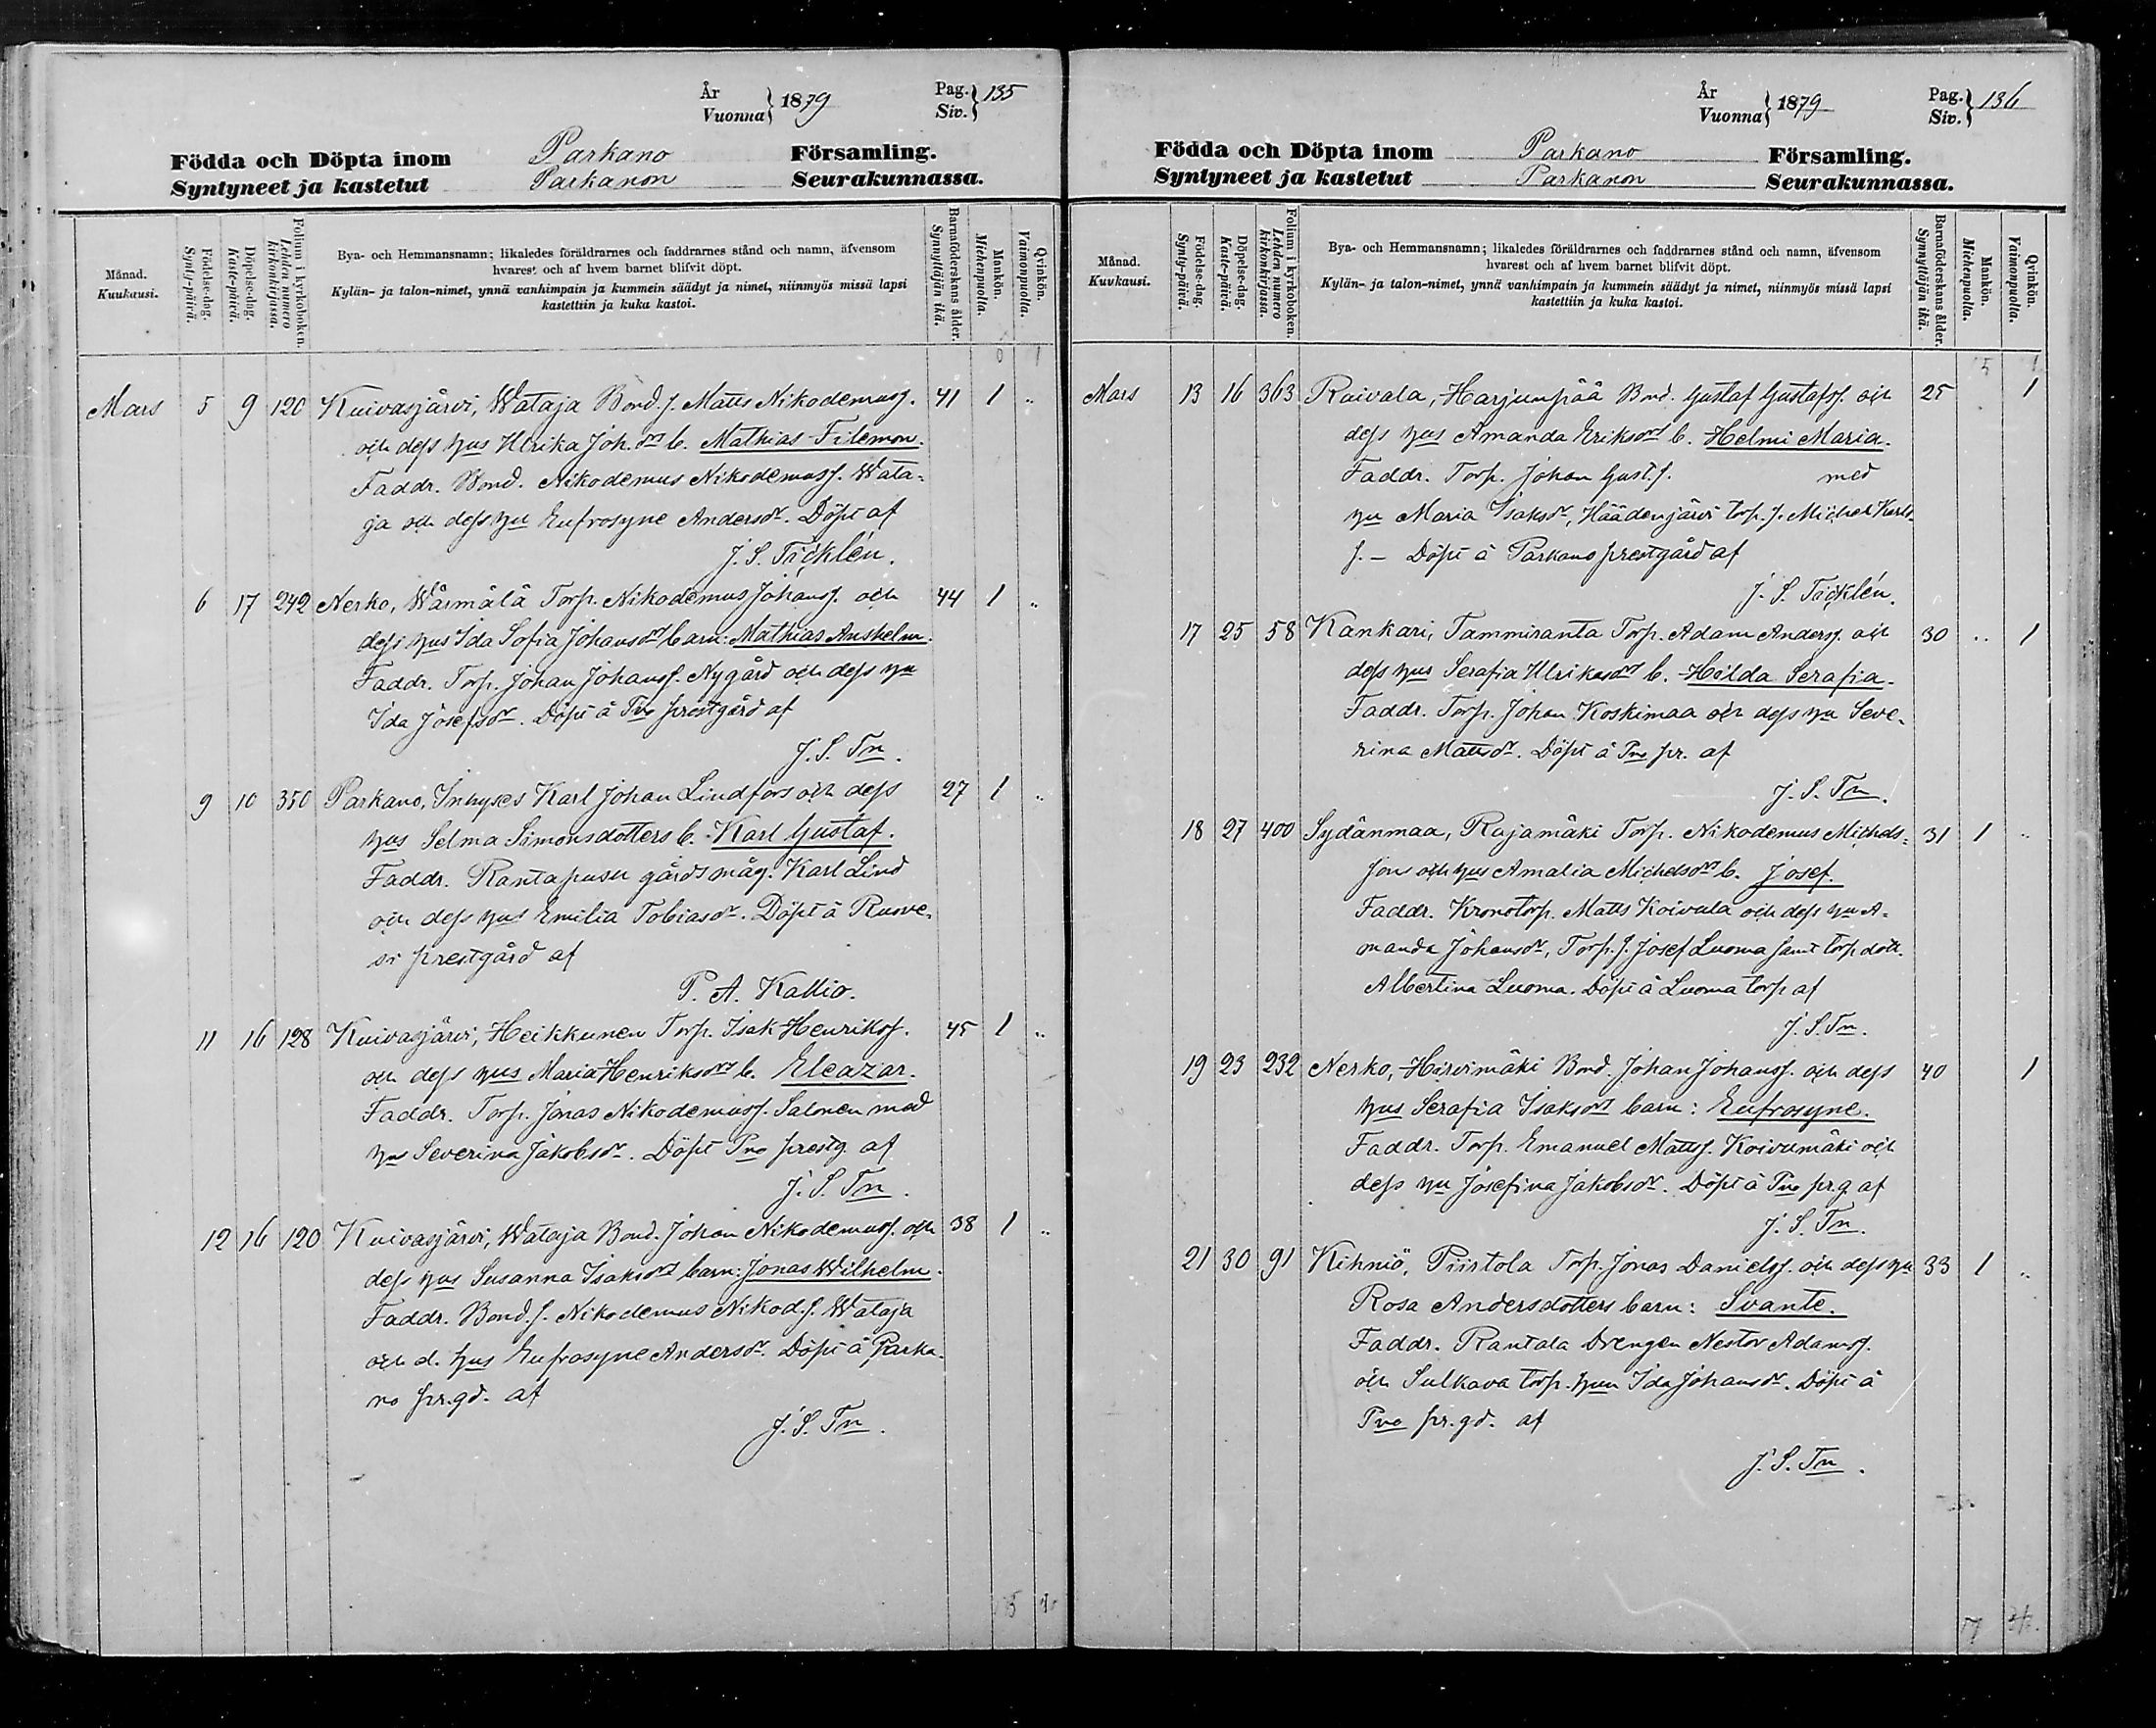 År
Vuonna } 1879
Pag.
Siv. } 135
Födda och Döpta inom Parkano Församling.
Syntyneet ja kastetut Parkanon Seurakunnassa.
Månad.
Kuukausi.
Födelse-dag.
Synty-päivä.
Döpelse-dag.
Kaste-päivä.
Folium i kyrkoboken.
Lehden numero kirkonkirjassa.
Bya- och Hemmansnamn; likaledes föräldrarnes och faddrarnes stånd och namn, äfvensom
hvarest och af hvem barnet blifvit döpt.
Kylän- ja talon-nimet, ynnä vanhimpain ja kummein säädyt ja nimet, niinmyös missä lapsi
kastettiin ja kuka kastoi.
Barnaföderskans ålder.
Synnyttäjän ikä.
Mankön.
Miehenpuolta.
Qvinkön.
Vaimonpuolta.
Mars 5 9 120 Kuivasjärvi, Wataja Bond.s. Matts Nikodemuss. 41 1 „
och dess hus Ulrika Joh.drs b. Mathias Filemon.
Faddr. Bond. Nikodemus Nikodemuss. Wata-
ja och dess hu Eufrosyne Andersdr. Döpt af
J. S. Täcklén.
6 17 242 Nerko, Wärmälä Torp. Nikodemus Johanss. och 44 1 „
dess hus Ida Sofia Johansdrs barn: Mathias Anshelm.
Faddr. Torp. Johan Johanss. Nygård och dess hu
Ida Josefsdr. Döpt å Pno prestgård af
J. S. Tn.
9 10 350 Parkano, Inhyses Karl Johan Lindfors och dess 27 1 „
hus Selma Simonsdotters b. Karl Gustaf.
Faddr. Rantapusu gårdsmåg. Karl Lind
och dess hus Emilia Tobiasdr. Döpt å Ruove-
si prestgård af
P. A. Kallio.
11 16 128 Kuivasjärvi, Heikkunen Torp. Isak Henrikss. 45 1 „
och dess hus Maria Henriksdrs b. Eleazar.
Faddr. Torp. Jonas Nikodemuss. Salonen med
hu Severina Jakobsdr. Döpt Pno prestg. af
J. S. Tn.
12 16 120 Kuivasjärvi, Wataja Bond. Johan Nikodemuss. och 38 1 „
dess hus Susanna Isaksdrs barn: Jonas Wilhelm.
Faddr. Bond.s. Nikodemus Nikod.s. Wataja
och d. hus Eufrosyne Andersdr. Döpt å Parka-
no pr.gd. af
J. S. Tn.
År
Vuonna } 1879
Pag.
Siv. } 136
Födda och Döpta inom Parkano Församling.
Syntyneet ja kastetut Parkanon Seurakunnassa.
Månad.
Kuukausi.
Födelse-dag.
Synty-päivä.
Döpelse-dag.
Kaste-päivä.
Folium i kyrkoboken.
Lehden numero kirkonkirjassa.
Bya- och Hemmansnamn; likaledes föräldrarnes och faddrarnes stånd och namn, äfvensom
hvarest och af hvem barnet blifvit döpt.
Kylän- ja talon-nimet, ynnä vanhimpain ja kummein säädyt ja nimet, niinmyös missä lapsi
kastettiin ja kuka kastoi.
Barnaföderskans ålder.
Synnyttäjän ikä.
Mankön.
Miehenpuolta.
Qvinkön.
Vaimonpuolta.
Mars 13 16 363 Raivala, Harjunpää Bond. Gustaf Gustafss. och 25 1
dess hus Amanda Eriksdrs b. Helmi Maria.
Faddr. Torp. Johan Gust.s. med
hu Maria Isaksdr, Häädenjärvi torp.s. Michel Karls-
s. – Döpt å Parkano prestgård af
J. S. Täcklén.
17 25 58 Kankari, Tammiranta Torp. Adam Anderss. och 30 „ 1
dess hus Serafia Ulriksdrs b. Hilda Serafia.
Faddr. Torp. Johan Koskimaa och dess hu Seve-
rina Mattsdr. Döpt å Pno pr. af
J. S. Tn.
18 27 400 Sydänmaa, Rajamäki Torp. Nikodemus Michels- 31 1 „
son och hus Amalia Michelsdrs b. Josef.
Faddr. Kronotorp. Matts Koivula och dess hu A-
manda Johansdr, Torp.s. Josef Luoma samt torp.dott.
Albertina Luoma. Döpt å Luoma torp af
J. S. Tn.
19 23 232 Nerko, Hirvimäki Bond. Johan Johanss. och dess 40 1
hus Serafia Isaksdrs barn: Eufrosyne.
Faddr. Torp. Emanuel Mattss. Koivumäki och
dess hu Josefina Jakobsdr. Döpt å Pno pr.g. af
J. S. Tn.
21 30 91 Kihniö, Piirtola Torp. Jonas Danielss. och dess hu 33 1 „
Rosa Andersdotters barn: Svante.
Faddr. Rantala Drengen Nestor Adamss.
och Sulkava torp. hun Ida Johansdr. Döpt å
Pno pr.gd. af
J. S. Tn.